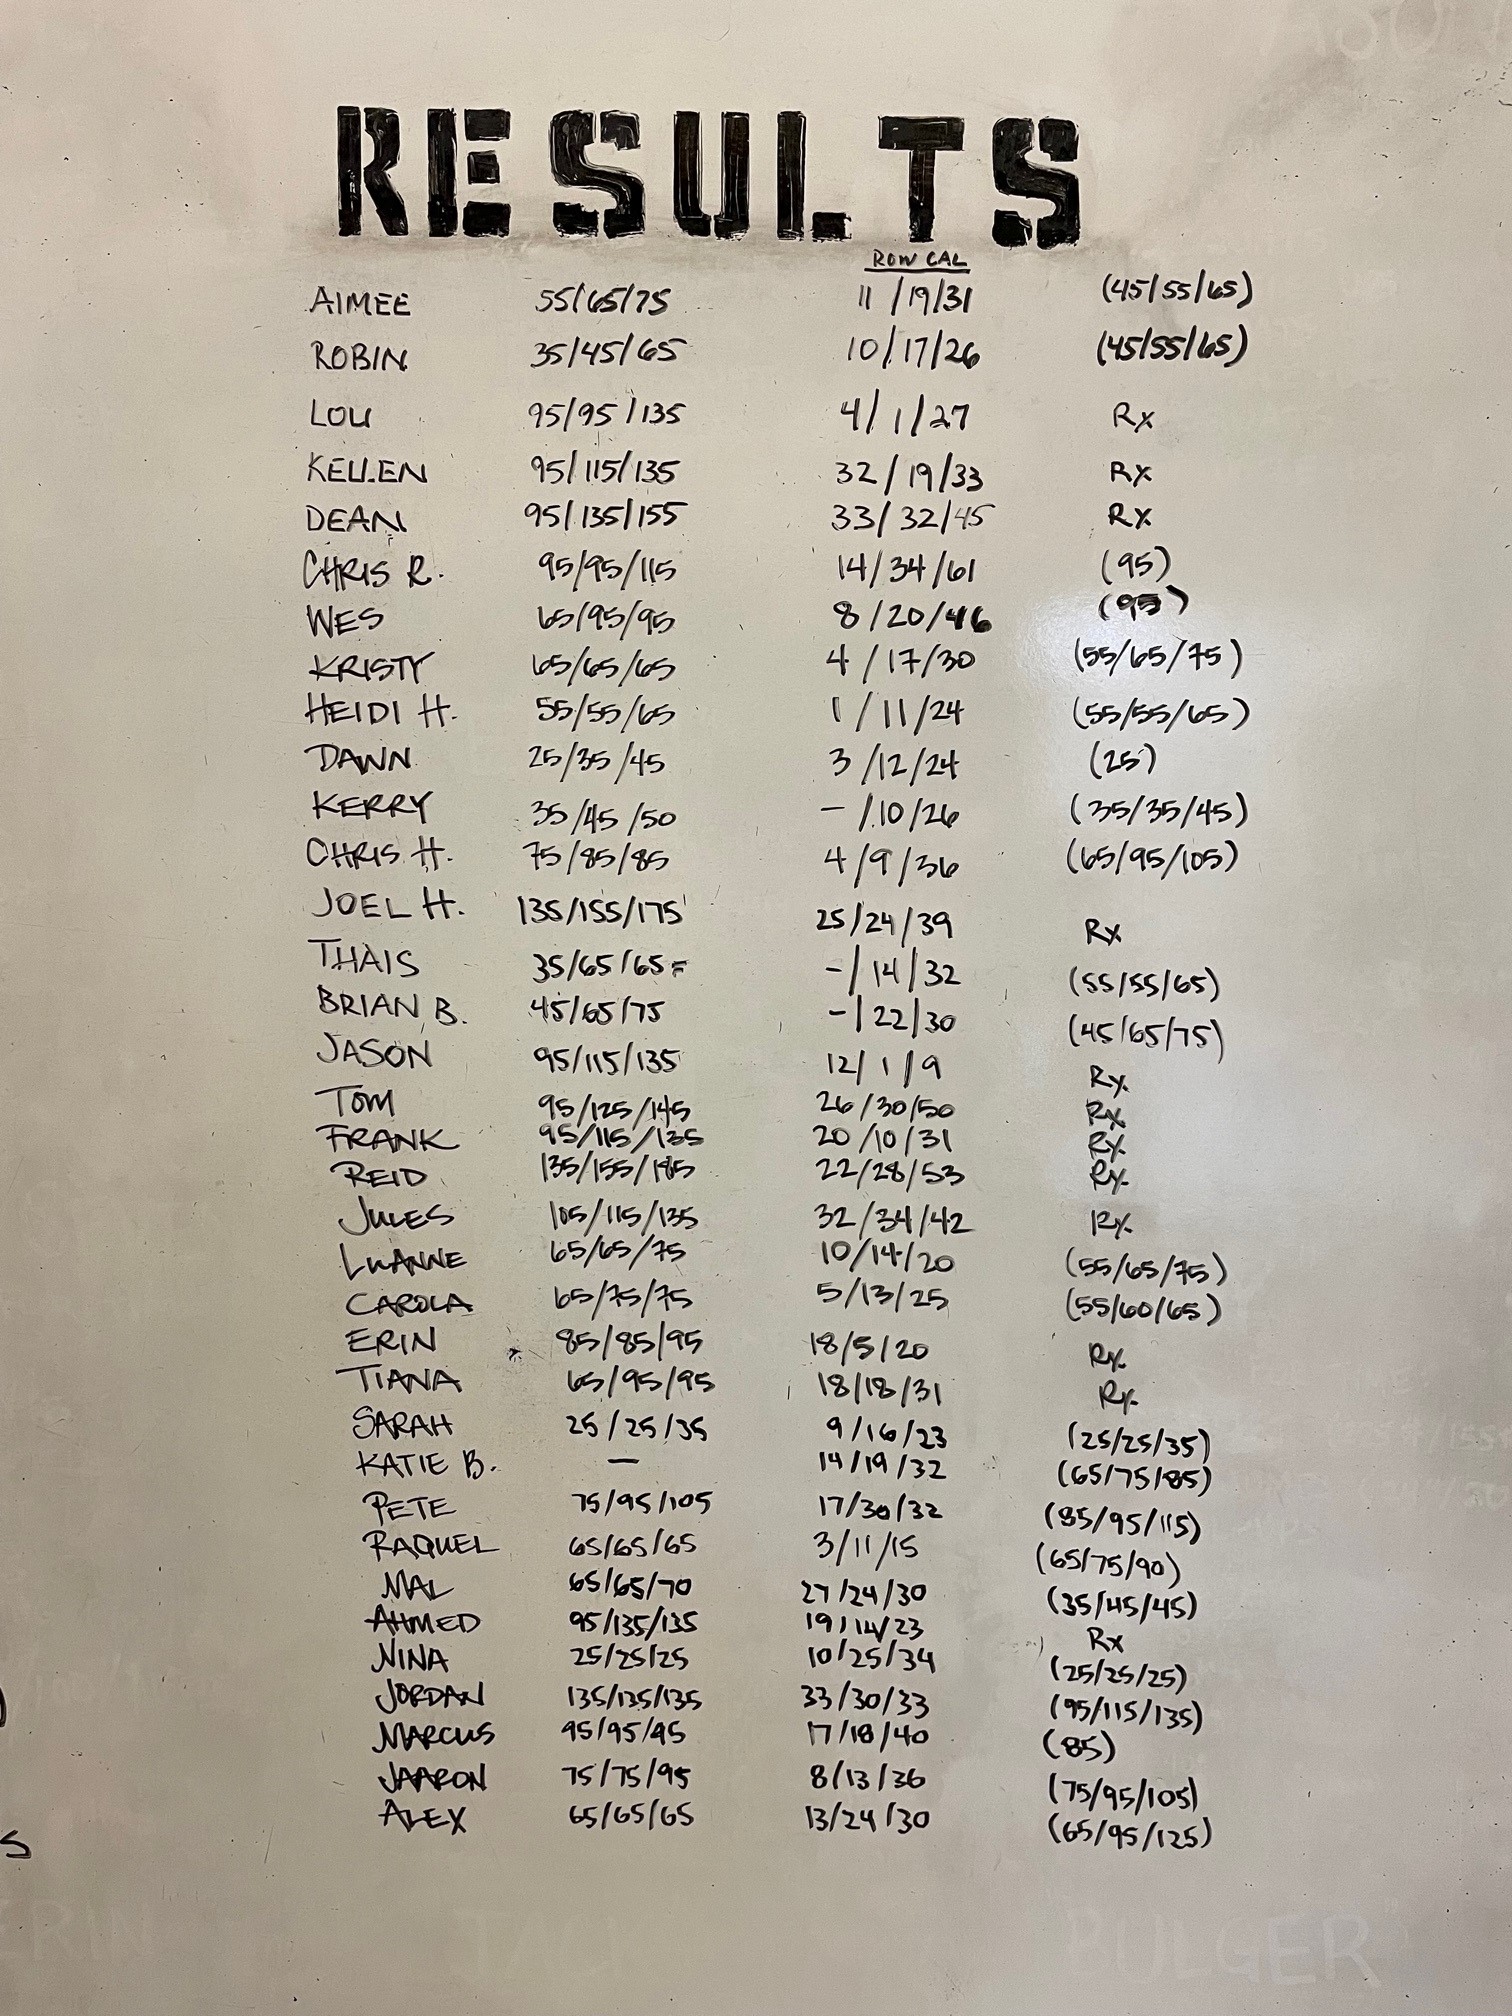 RESULTS
ROW CAL
AIMEE 55/65/75 11/19/31 (45/55/65)
ROBIN 35/45/65 10/17/26 (45/55/65)
LOU 95/95/135 4/1/27 Rx
KELLEN 95/115/135 32/19/33 Rx
DEAN 95/135/155 33/32/45 Rx
CHRIS R. 95/95/115 14/34/61 (95)
WES 65/95/95 8/20/46 (95)
KRISTY 65/65/65 4/17/30 (55/65/75)
HEIDI H. 55/55/65 1/11/24 (55/55/65)
DAWN 25/35/45 3/12/24 (25)
KERRY 35/45/50 -/10/26 (35/35/45)
CHRIS H. 75/85/85 4/9/36 (65/95/105)
JOEL H. 135/155/175 25/24/39 Rx
THAIS 35/65/65 -/14/32 (55/55/65)
BRIAN B. 45/65/75 -/22/30 (45/65/75)
JASON 95/115/135 12/1/9 Rx
TOM 95/125/145 26/30/50 Rx
FRANK 95/115/135 20/10/31 Rx
REID 135/155/185 22/28/53 Rx
JULES 105/115/135 32/34/42 Rx
LUANNE 65/65/75 10/14/20 (55/65/75)
CAROLA 65/75/75 5/13/25 (55/60/65)
ERIN 85/85/95 18/5/20 Rx
TIANA 65/95/95 18/18/31 Rx
SARAH 25/25/35 9/16/23 (25/25/35)
KATIE B. — 14/19/32 (65/75/85)
PETE 75/95/105 17/30/32 (85/95/115)
RAQUEL 65/65/65 3/11/15 (65/75/90)
MAL 65/65/70 27/24/30 (35/45/45)
AHMED 95/135/135 19/14/23 Rx
NINA 25/25/25 10/25/34 (25/25/25)
JORDAN 135/135/135 33/30/33 (95/115/135)
MARCUS 95/95/95 17/18/40 (85)
JAARON 75/75/95 8/13/36 (75/95/105)
ALEX 65/65/65 13/24/30 (65/95/125)
BULGER